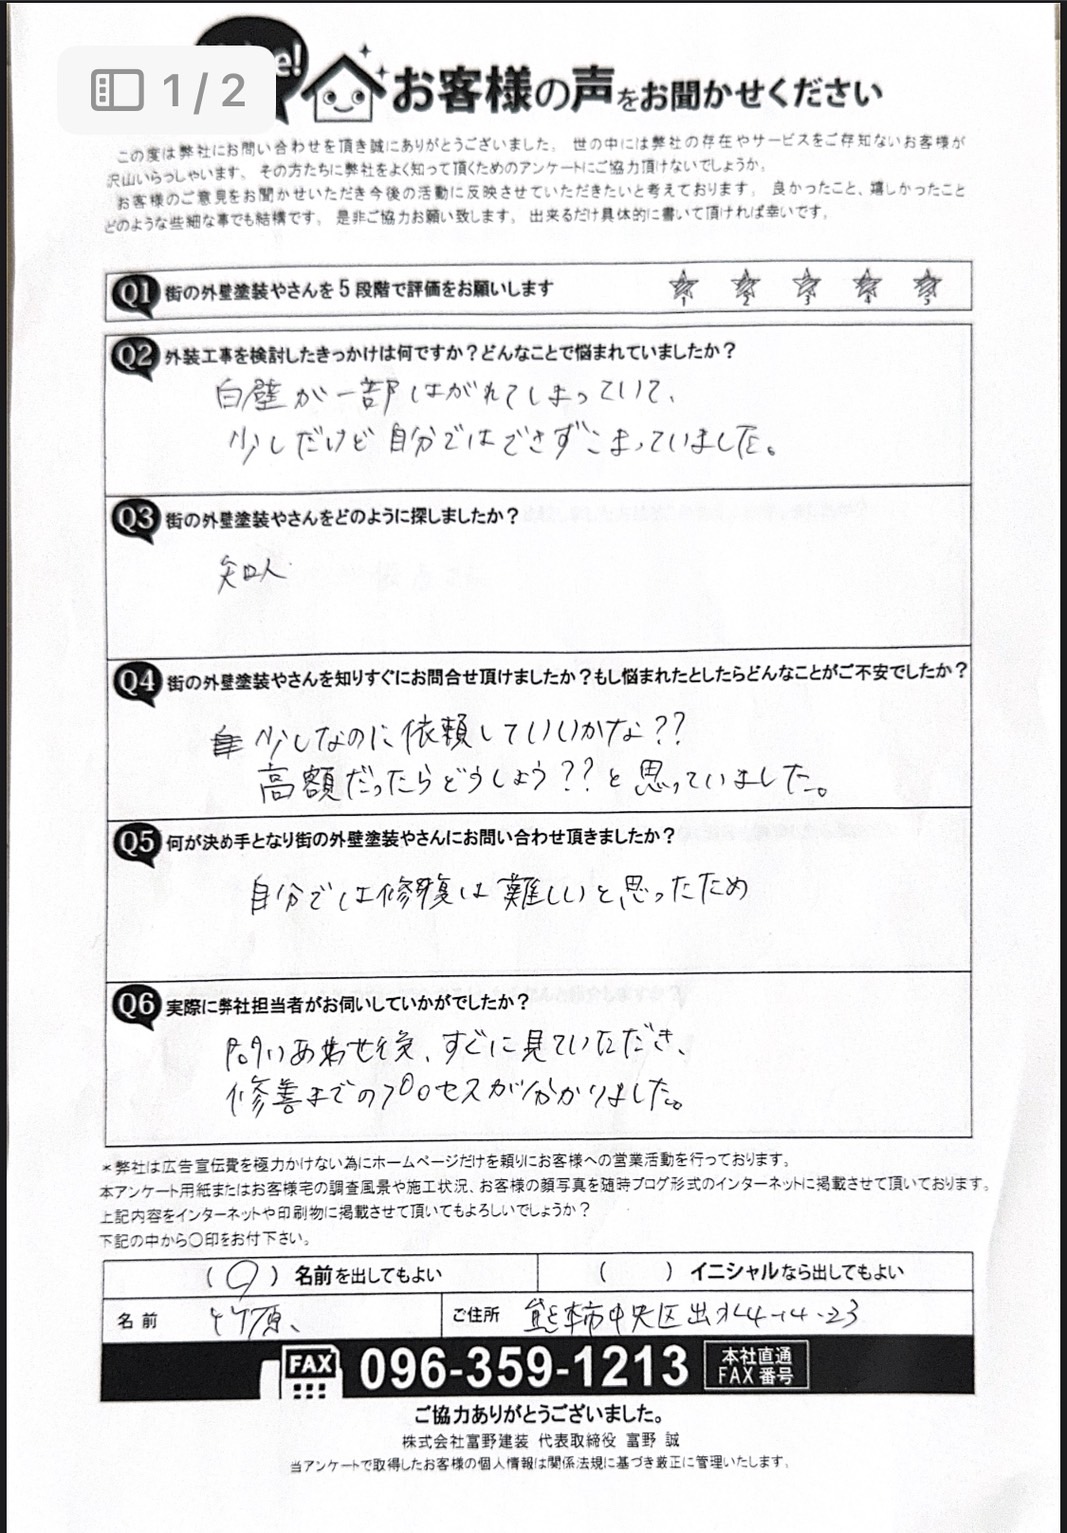 1 / 2
お客様の声をお聞かせください
この度は弊社にお問い合わせを頂き誠にありがとうございました。世の中には弊社の存在やサービスをご存知ないお客様が
沢山いらっしゃいます、その方たちに弊社をよく知って頂くためのアンケートにご協力頂けないでしょうか。
お客様のご意見をお聞かせいただき今後の活動に反映させていただきたいと考えております。良かったこと、嬉しかったこと
どのような些細な事でも結構です。是非ご協力お願い致します。出来るだけ具体的に書いて頂ければ幸いです。
Q1 街の外壁塗装やさんを5段階で評価をお願いします
1 2 3 4 5
Q2 外装工事を検討したきっかけは何ですか？どんなことで悩まれていましたか？
白壁が一部はがれてしまっていて、
少しだけど自分ではできずこまっていました。
Q3 街の外壁塗装やさんをどのように探しましたか？
知人
Q4 街の外壁塗装やさんを知りすぐにお問合せ頂けましたか？もし悩まれたとしたらどんなことがご不安でしたか？
少しなのに依頼していいかな？？
高額だったらどうしよう？？と思っていました。
Q5 何が決め手となり街の外壁塗装やさんにお問い合わせ頂きましたか？
自分では修復は難しいと思ったため
Q6 実際に弊社担当者がお伺いしていかがでしたか？
問いあわせ後、すぐに見ていただき、
修善までのプロセスが分かりました。
＊弊社は広告宣伝費を極力かけない為にホームページだけを頼りにお客様への営業活動を行っております。
本アンケート用紙またはお客様宅の調査風景や施工状況、お客様の顔写真を随時ブログ形式のインターネットに掲載させて頂いております。
上記内容をインターネットや印刷物に掲載させて頂いてもよろしいでしょうか？
下記の中から〇印をお付下さい。
（〇）名前を出してもよい （ ）イニシャルなら出してもよい
名前 竹原 ご住所 熊本市中央区出水4-14-23
FAX 096-359-1213 本社直通
FAX番号
ご協力ありがとうございました。
株式会社富野建装 代表取締役 富野 誠
当アンケートで取得したお客様の個人情報は関係法規に基づき厳正に管理いたします。